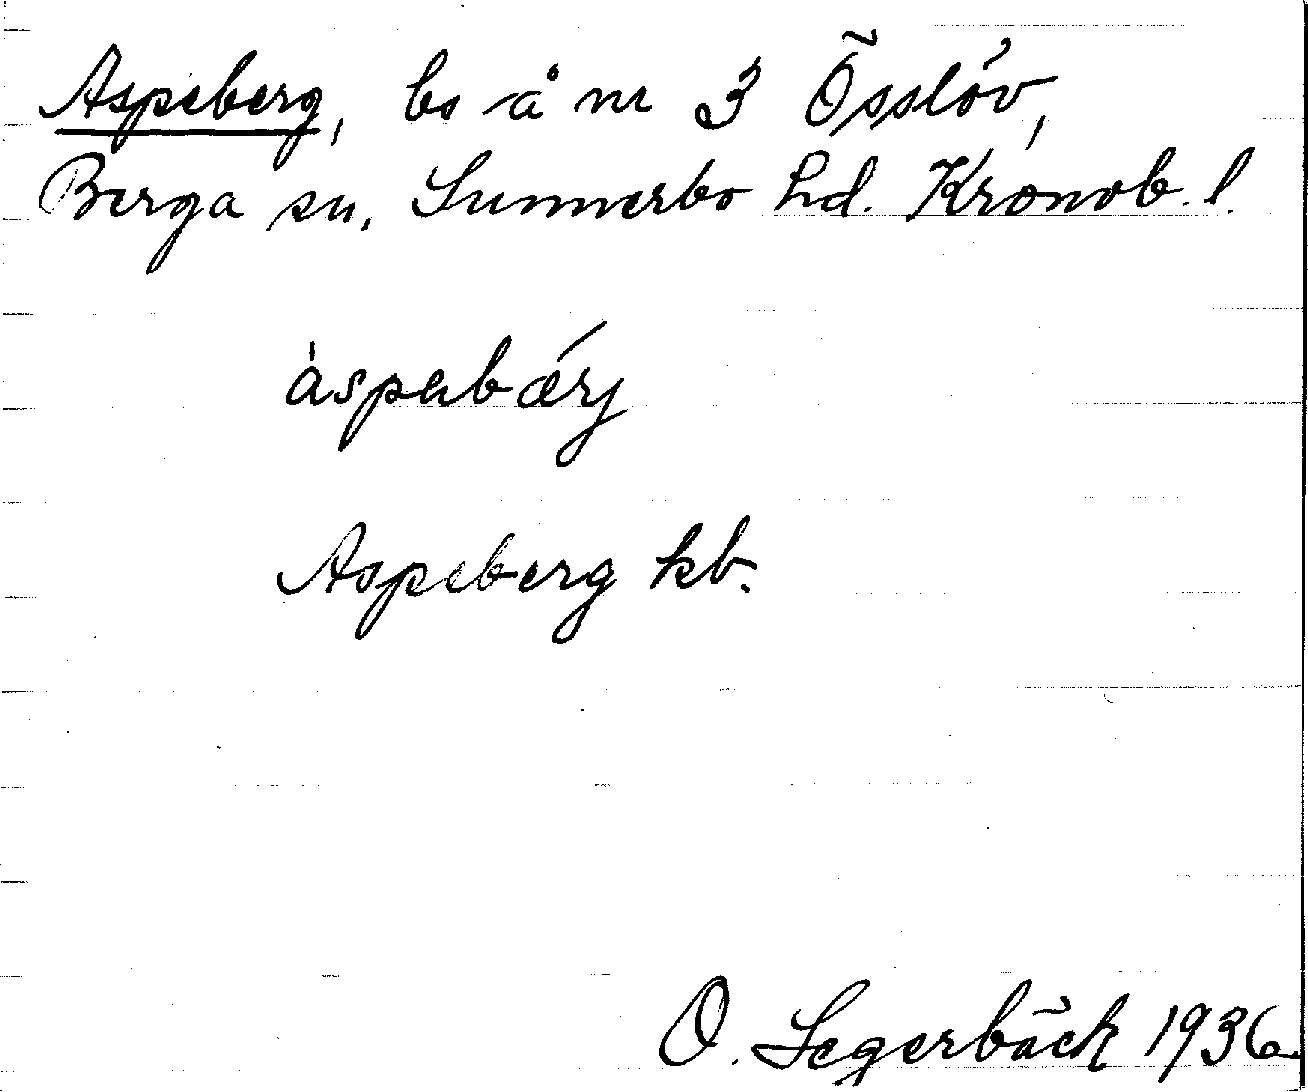 Aspeberg, bs å nr 3 Össlöv,
Berga sn, Sunnerbo hd. Kronob. l.
áspabǽrj
Aspeberg kb.
O. Segerbäck 1936.